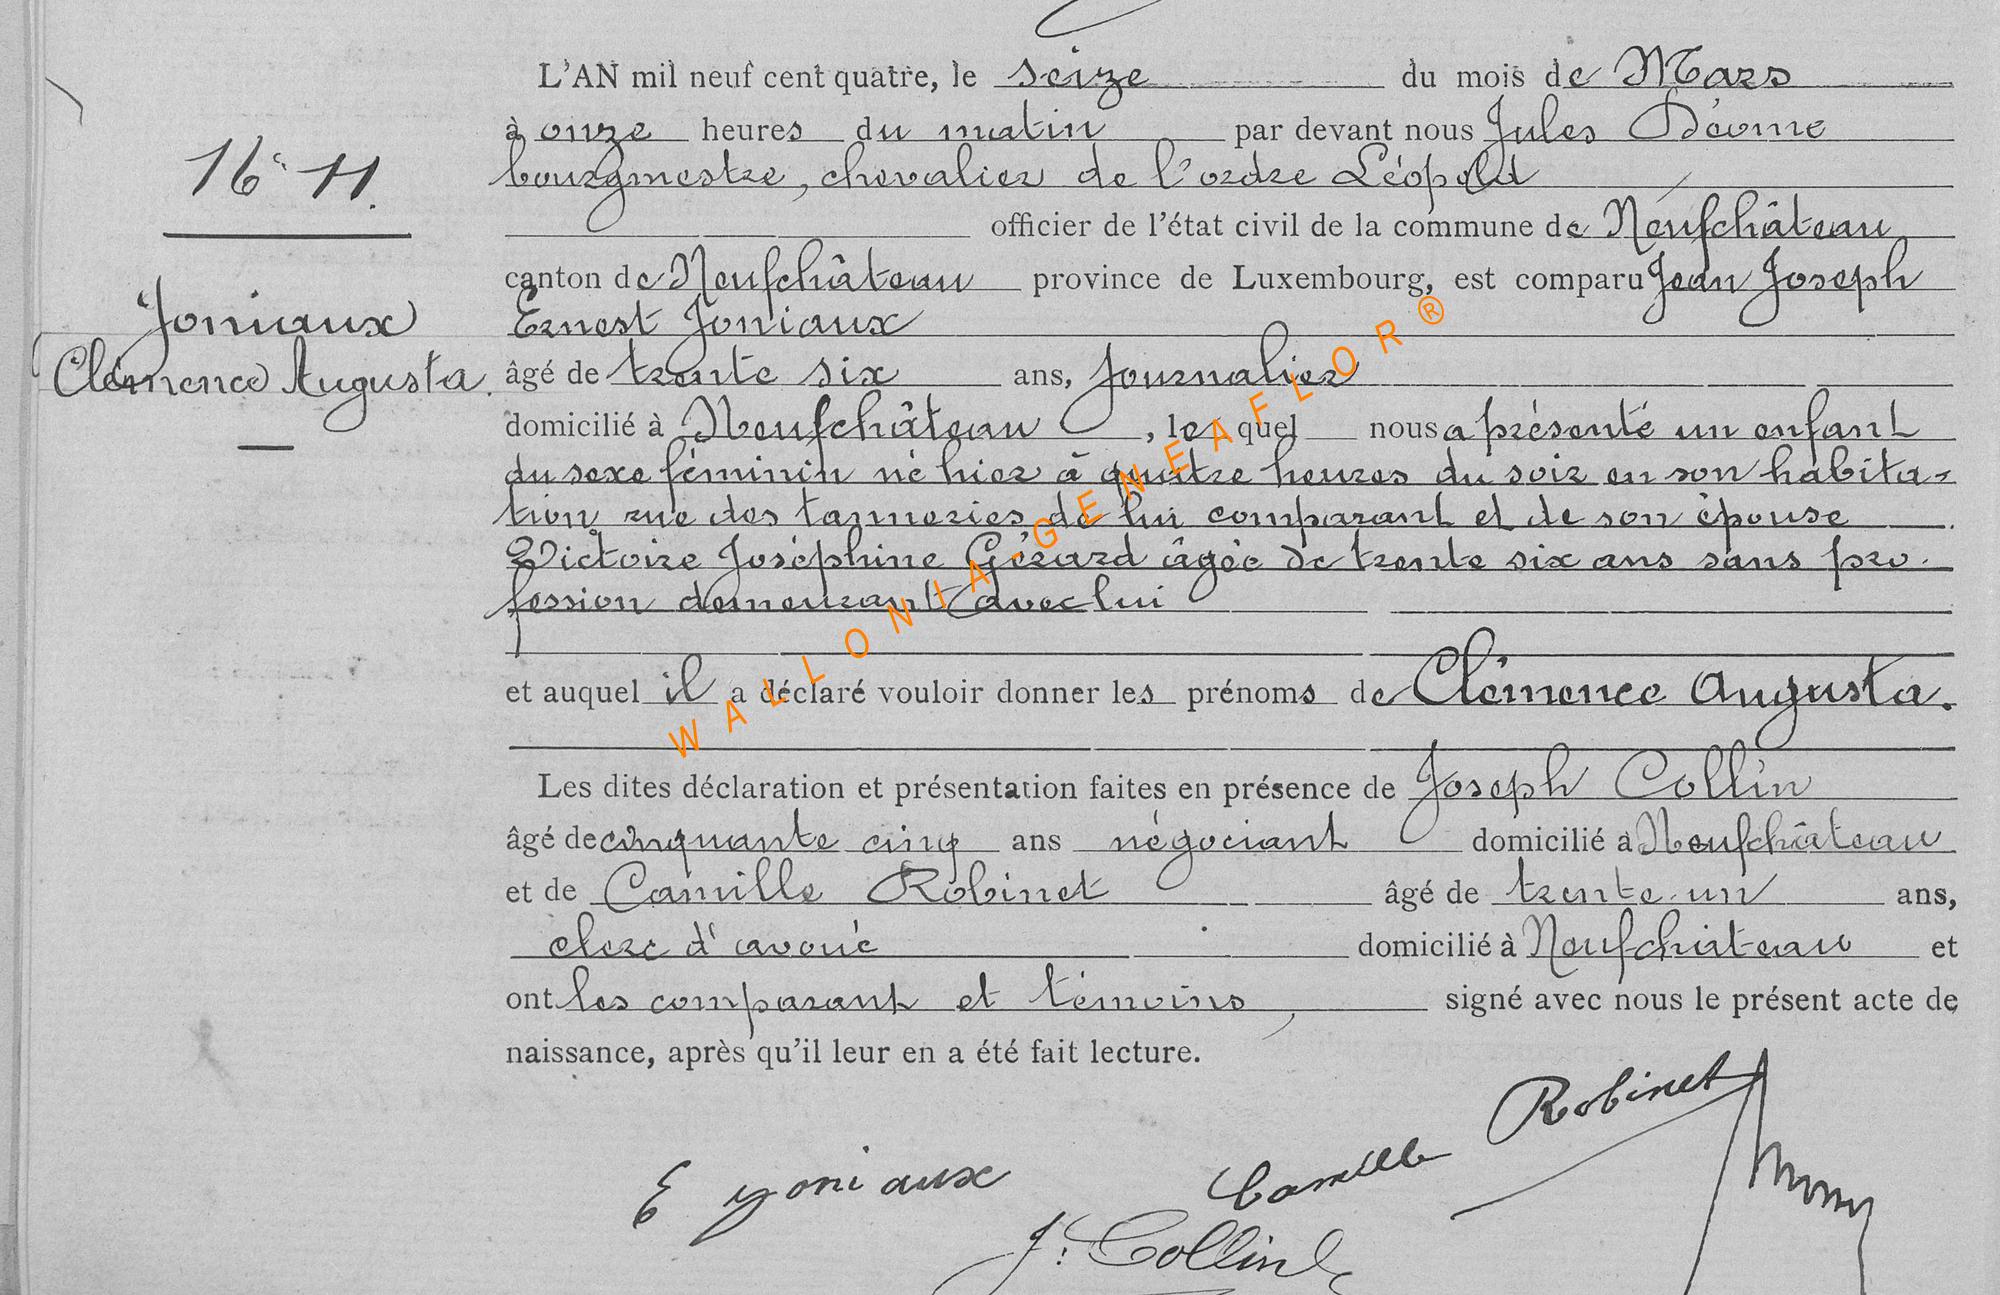 16 - 11.
Joniaux
Clémence Augusta.
L'AN mil neuf cent quatre, le seize du mois de Mars
à onze heures du matin par devant nous Jules
bourgmestre, chevalier de l'ordre Léopold
officier de l'état civil de la commune de Neufchâteau
canton de Neufchâteau province de Luxembourg, est comparu Jean Joseph
Ernest Joniaux
âgé de trente six ans, journalier
domicilié à Neufchâteau, lequel nous a présenté un enfant
du sexe féminin né hier à quatre heures du soir en son habita-
tion rue des tanneries de lui comparant et de son épouse
Victoire Joséphine Gérard âgée de trente six ans sans pro-
fession demeurant avec lui
et auquel il a déclaré vouloir donner les prénoms de Clémence Augusta.
Les dites déclaration et présentation faites en présence de Joseph Collin
âgé de cinquante cinq ans négociant domicilié à Neufchâteau
et de Camille Robinet âgé de trente-un ans,
clerc d'avoué domicilié à Neufchâteau et
ont les comparant et témoins, signé avec nous le présent acte de
naissance, après qu'il leur en a été fait lecture.
E Joniaux
Camille Robinet
J. Collin
WALLONIA-GENEAFLOR®